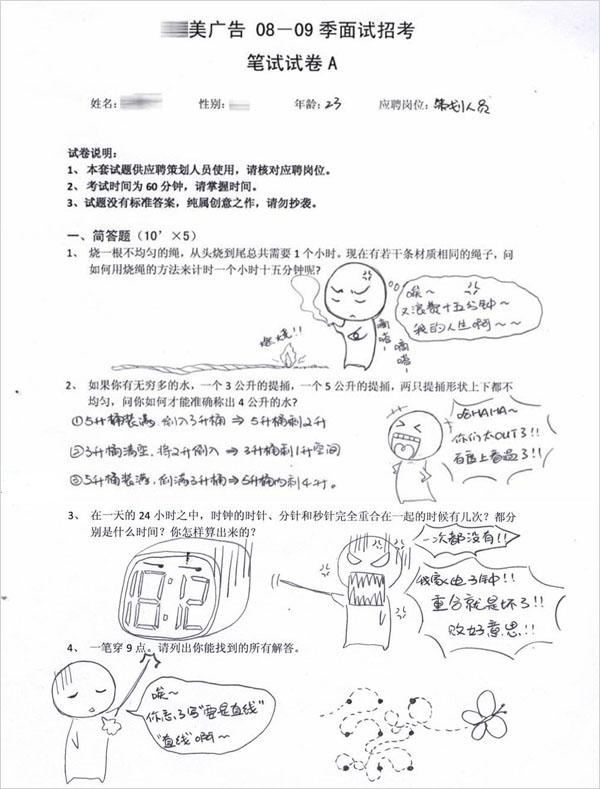 美广告 08—09 季面试招考
笔试试卷 A
姓名： 性别： 年龄：23 应聘岗位：策划人员
试卷说明：
1、 本套试题供应聘策划人员使用，请核对应聘岗位。
2、 考试时间为 60 分钟，请掌握时间。
3、试题没有标准答案，纯属创意之作，请勿抄袭。
一、简答题（10’×5）
1、 烧一根不均匀的绳，从头烧到尾总共需要 1 个小时。现在有若干条材质相同的绳子，问
如何用烧绳的方法来计时一个小时十五分钟呢？
唉~
又浪费十五分钟~
我的人生啊~~
燃烧!!
嘀嗒~
嘀嗒~
2、 如果你有无穷多的水，一个 3 公升的提捅，一个 5 公升的提捅，两只提捅形状上下都不
均匀，问你如何才能准确称出 4 公升的水？
①5升桶装满 倒入3升桶⇒5升桶剩2升
②3升桶清空，将2升倒入⇒3升桶剩1升空间
③5升桶装满，倒满3升桶⇒5升桶内剩4升。
哈HAHA~
你们太OUT了!!
百度上看过了!!
3、 在一天的 24 小时之中，时钟的时针、分针和秒针完全重合在一起的时候有几次？都分
别是什么时间？你怎样算出来的？
一次都没有!!
我家电子钟!!
重合就是坏了!!
败好意思!!
4、 一笔穿 9 点。请列出你能找到的所有解答。
唉~
你忘了写“要是直线”
“直线”啊~